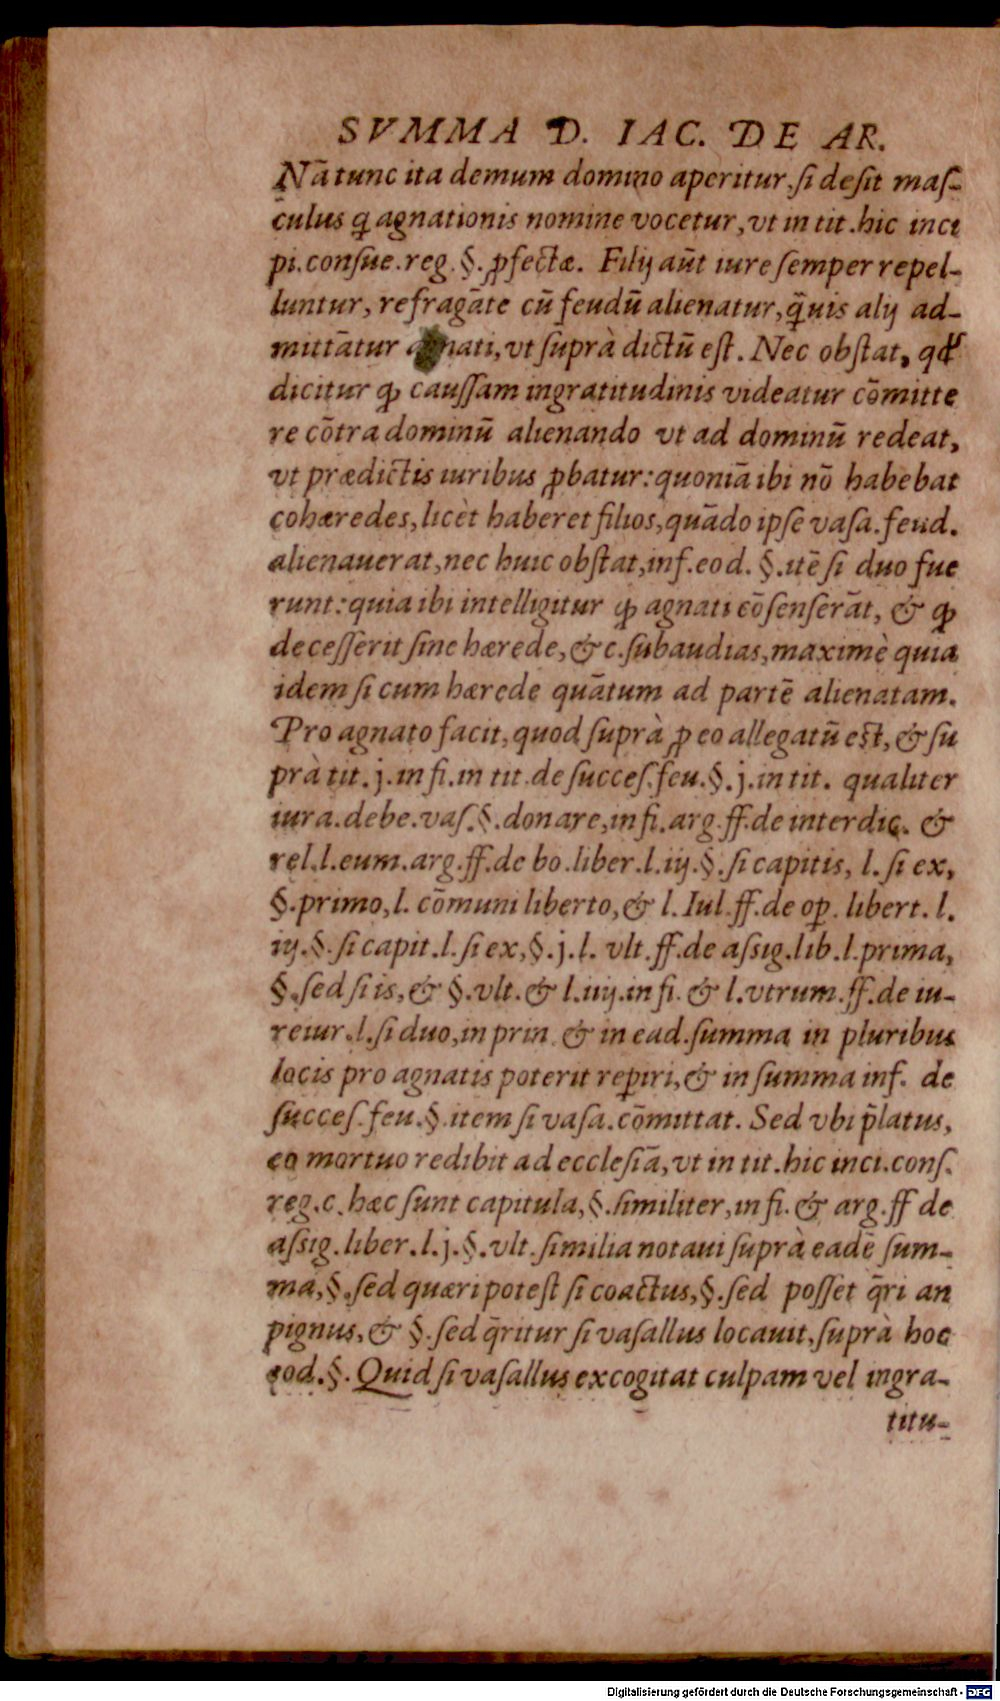 SVMMA D. IAC. DE AR.
Nã tunc ita demum domino aperitur, ſi deſit maſ-
culus ꝗ agnationis nomine vocetur, vt in tit. hic inci
pi. conſue. reg. §. ꝓfectæ. Filij aũt iure ſemper repel-
luntur, refragãte cũ feudũ alienatur, q̃uis alij ad-
mittãtur agnati, vt ſuprà dictũ eſt. Nec obſtat, qđ
dicitur ꝙ cauſſam ingratitudinis videatur cõmitte
re cõtra dominũ alienando vt ad dominũ redeat,
vt prædictis iuribus ꝓbatur: quoniã ibi nõ habebat
cohæredes, licèt haberet filios, quãdo ipſe vaſa. feud.
alienauerat, nec huic obſtat, inf. eod. §. itẽ ſi duo fue
runt: quia ibi intelligitur ꝙ agnati cõſenſerãt, & ꝙ
deceſſerit ſine hærede, &c. ſubaudias, maximè quia
idem ſi cum hærede quãtum ad partẽ alienatam.
Pro agnato facit, quod ſuprà ꝓ eo allegatũ eſt, & ſu
prà tit. j. in fi. in tit. de ſucceſ. feu. §. j. in tit. qualiter
iura. debe. vaſ. §. donare, in fi. arg. ff. de interdic. &
rel. l. eum. arg. ff. de bo. liber. l. iij. §. ſi capitis, l. ſi ex,
§. primo, l. cõmuni liberto, & l. Iul. ff. de oꝑ. libert. l.
iij. §. ſi capit. l. ſi ex, §. j. l. vlt. ff. de aſsig. lib. l. prima,
§. ſed ſi is, & §. vlt. & l. iiij. in fi. & l. vtrum. ff. de iu-
reiur. l. ſi duo, in prin. & in ead. ſumma in pluribus
locis pro agnatis poterit reꝑiri, & in ſumma inf. de
ſucceſ. feu. §. item ſi vaſa. cõmittat. Sed vbi p̃latus,
eo mortuo redibit ad eccleſiã, vt in tit. hic inci. conſ.
reg. c. hæc ſunt capitula, §. ſimiliter, in fi. & arg. ff de
aſsig. liber. l. j. §. vlt. ſimilia notaui ſuprà eadẽ ſum-
ma, §. ſed quæri poteſt ſi coactus, §. ſed poſſet q̃ri an
pignus, & §. ſed q̃ritur ſi vaſallus locauit, ſuprà hoc
eod. §. Quid ſi vaſallus excogitat culpam vel ingra-
titu-
Digitalisierung gefördert durch die Deutsche Forschungsgemeinschaft - DFG